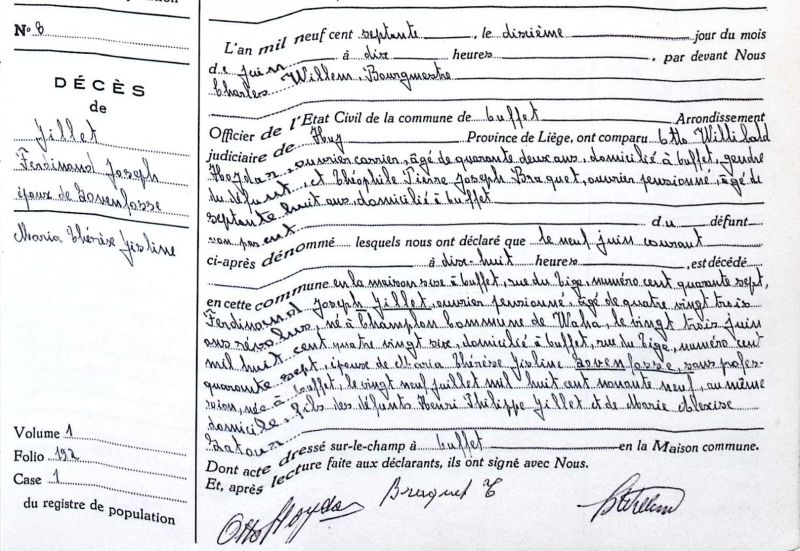 Nº 8
DÉCÈS
de
Jillet
Ferdinand Joseph
époux de Lovenfosse
Maria Thérèse Jisline
Volume 1
Folio 192
Case 1
du registre de population
L'an mil neuf cent septante, le dixième jour du mois
de juin à dix heures, par devant Nous
Charles Willem, Bourgmestre
Officier de l'Etat Civil de la commune de Buffet Arrondissement
judiciaire de Huy Province de Liège, ont comparu Otto Willibald
Hoydan, ouvrier carrier, âgé de quarante deux ans, domicilié à Buffet, gendre
du défunt, et Théophile Pierre Joseph Braquet, ouvrier pensionné, âgé de
septante huit ans, domicilié à Buffet
non parent du défunt
ci-après dénommé lesquels nous ont déclaré que le neuf juin courant
à dix-huit heures, est décédé
en cette commune en la maison sise à Buffet, rue du Tige, numéro cent quarante sept,
Ferdinand Joseph Jillet, ouvrier pensionné, âgé de quatre vingt trois
ans révolus, né à Champlon Commune de Waha, le vingt trois juin
mil huit cent quatre vingt six, domicilié à Buffet, rue du Tige, numéro cent
quarante sept, époux de Maria Thérèse Jisline Lovenfosse, sans profes-
sion, née à Buffet, le vingt neuf juillet mil huit cent nonante neuf, au même
domicile, fils des défunts Henri Philippe Jillet et de Marie Alexise
Dont acte dressé sur-le-champ à Buffet en la Maison commune.
Et, après lecture faite aux déclarants, ils ont signé avec Nous.
Otto Hoydan
Braquet T